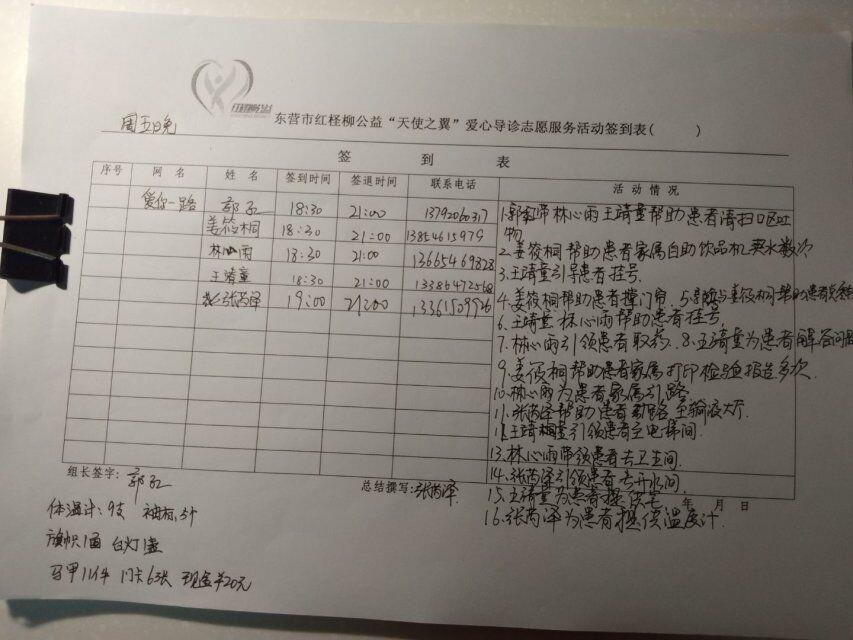 东营市红柽柳公益“天使之翼”爱心导诊志愿服务活动签到表( )
周五晚
签 到 表
序号 网 名 姓 名 签到时间 签退时间 联系电话 活 动 情 况
爱你一路 郭红 18:30 21:00 13792060317
姜筱桐 18:30 21:00 13854615979
林心雨 18:30 21:00
王靖童 18:30 21:00
张芮泽 19:00 21:00
1.郭红带林心雨王靖童帮助患者清扫口区吐
物
2.姜筱桐帮助患者家属自助饮品机买水数次
3.王靖童引导患者挂号.
4.姜筱桐帮助患者撑门帘.
6.王靖童林心雨帮助患者挂号,
7.林心雨引领患者取药.8.王靖童为患者解答问题
9.姜筱桐帮助患者家属打印检验报告多次.
10.林心雨为患者家属引路
11.张芮泽帮助患者 至输液大厅.
引领患者至电梯间.
13.林心雨带领患者去卫生间.
14.张芮泽引领患者去开水间.
15.王靖童为患者提
16.张芮泽为患者提供温度计.
年 月 日
组长签字: 郭红
总结撰写:张芮泽
体温计:9支 袖标:3个
旗帜1面 台灯1盏
马甲11件 门卡6张 现金¥20元